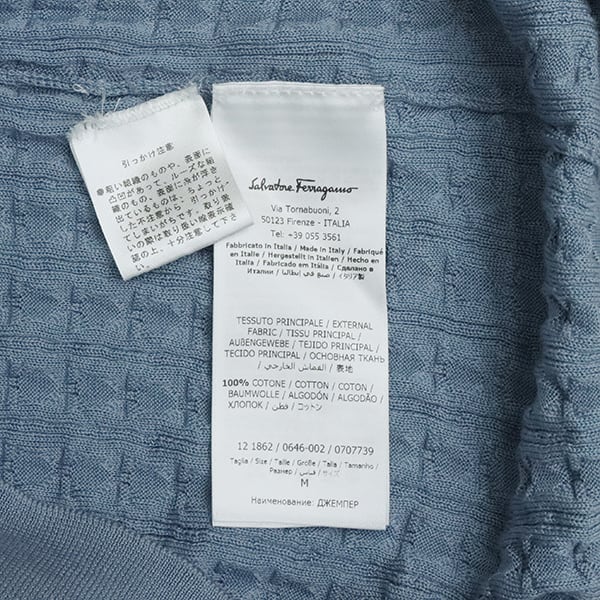 引っかけ注意
●粗い組織のものや、表面に
凸凹があって、ルーズな組
織のもの、表面に糸が浮き
出ているものは、ちょっと
した不注意から、引っかけ
てしまいがちです。取り扱
いの際は取り扱い絵表示確
認の上、十分注意して下さ
い。
Salvatore Ferragamo
Via Tornabuoni, 2
50123 Firenze - ITALIA
Tel: +39 055 3561
Fabbricato in Italia / Made in Italy / Fabriqué
en Italie / Hergestellt in Italien / Hecho en
Italia / Fabricado em Itália / Сделано в
Италии / صنع في إيطاليا / イタリア製
TESSUTO PRINCIPALE / EXTERNAL
FABRIC / TISSU PRINCIPAL /
AUßENGEWEBE / TEJIDO PRINCIPAL /
TECIDO PRINCIPAL / ОСНОВНАЯ ТКАНЬ
/ القماش الخارجي / 表地
100% COTONE / COTTON / COTON /
BAUMWOLLE / ALGODÓN / ALGODÃO /
ХЛОПОК / قطن / コットン
12 1862 / 0646-002 / 0707739
Taglia / Size / Taille / Größe / Talla / Tamanho /
Размер / قياس / サイズ
M
Наименование: ДЖЕМПЕР